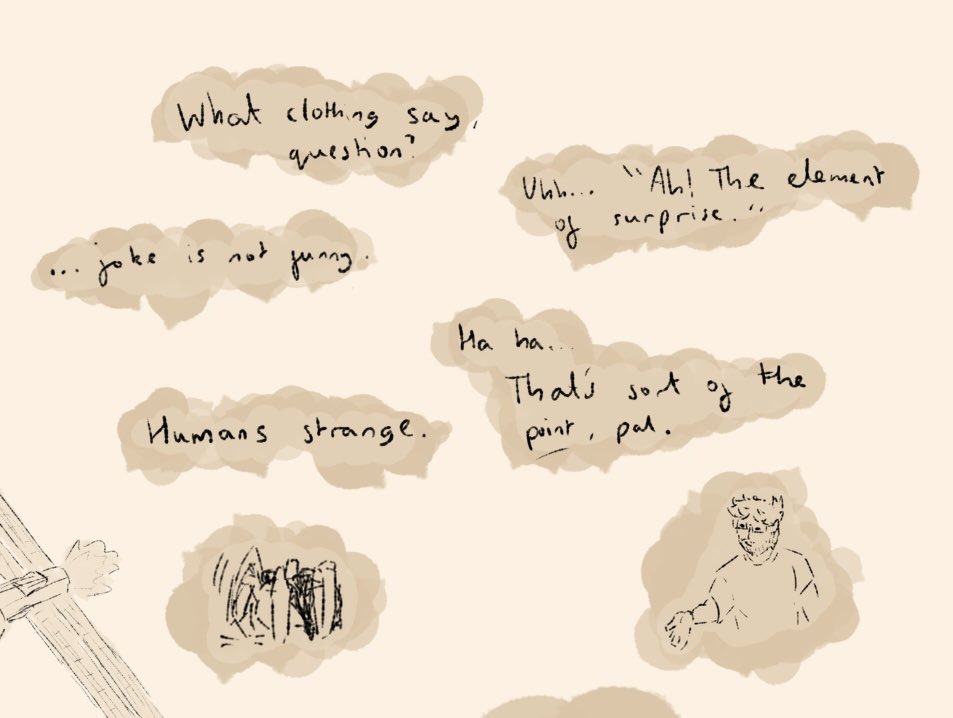 What clothing say,
question?
Uhh... "Ah! The element
of surprise."
... joke is not funny.
Ha ha...
That's sort of the
point, pal.
Humans strange.